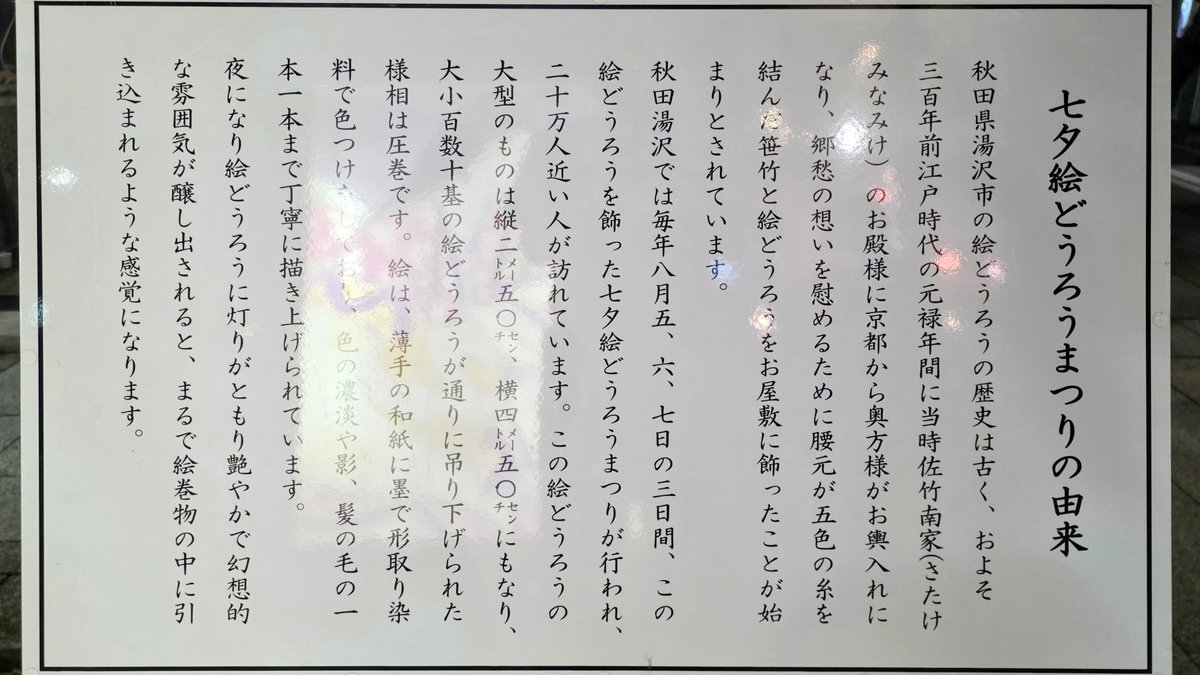 七夕絵どうろうまつりの由来
秋田県湯沢市の絵どうろうの歴史は古く、およそ
三百年前江戸時代の元禄年間に当時佐竹南家(さたけ
みなみけ)のお殿様に京都から奥方様がお輿入れに
なり、郷愁の想いを慰めるために腰元が五色の糸を
結んだ笹竹と絵どうろうをお屋敷に飾ったことが始
まりとされています。
秋田湯沢では毎年八月五、六、七日の三日間、この
絵どうろうを飾った七夕絵どうろうまつりが行われ、
二十万人近い人が訪れています。この絵どうろうの
大型のものは縦二メートル五〇センチ、横四メートル五〇センチにもなり、
大小百数十基の絵どうろうが通りに吊り下げられた
様相は圧巻です。絵は、薄手の和紙に墨で形取り染
料で色つけ、色の濃淡や影、髪の毛の一
本一本まで丁寧に描き上げられています。
夜になり絵どうろうに灯りがともり艶やかで幻想的
な雰囲気が醸し出されると、まるで絵巻物の中に引
き込まれるような感覚になります。